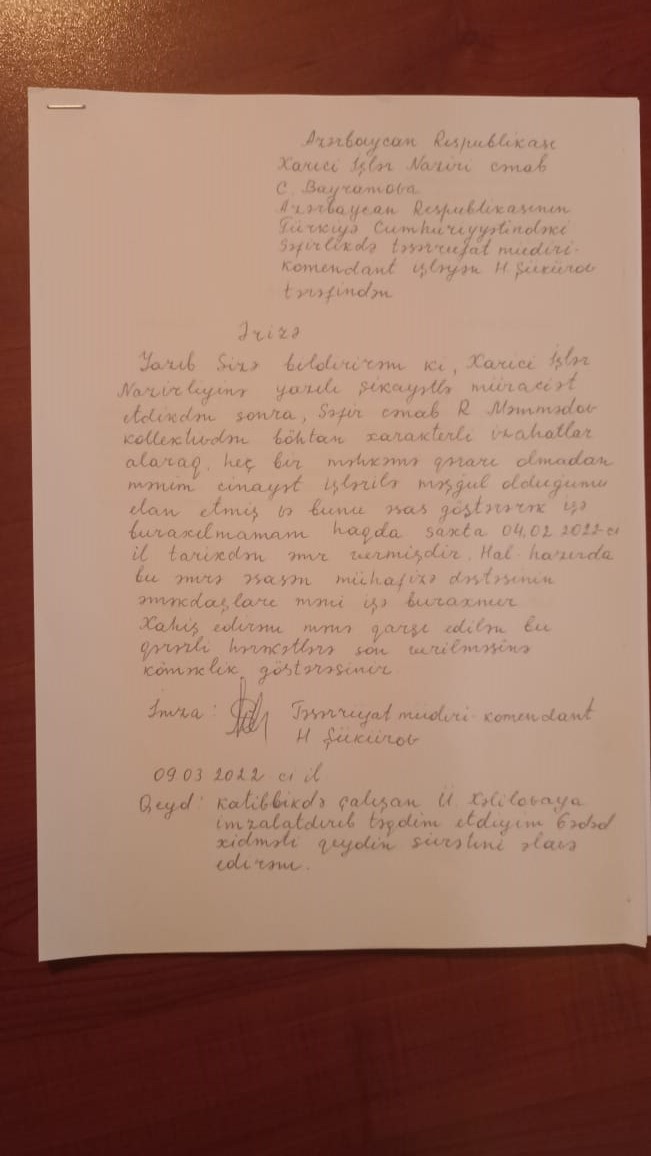 Azərbaycan Respublikası
Xarici İşlər Naziri cənab
C. Bayramova
Azərbaycan Respublikasının
Türkiyə Cumhuriyyətindəki
Səfirlikdə təsərrüfat müdiri-
komendant işləyən H Şükürov
tərəfindən
Ərizə
Yazıb Sizə bildirirəm ki, Xarici İşlər
Nazirliyinə yazılı şikayətlə müraciət
etdikdən sonra, Səfir cənab R Məmmədov
kollektivdən böhtan xarakterli izahatlar
alaraq, heç bir məhkəmə qərarı olmadan
mənim cinayət işlərilə məşğul olduğumu
elan etmiş və bunu əsas göstərərək işə
buraxılmamam haqda saxta 04.02 2022-ci
il tarixdən əmr vermişdir. Hal hazırda
bu əmrə əsasən mühafizə dəstəsinin
əməkdaşları məni işə buraxmır
Xahiş edirəm mənə qarşı edilən bu
qərəzli hərəkətlərə son verilməsinə
köməklik göstərəsiniz
İmza: Təsərrüfat müdiri-komendant
H Şükürov
09 03 2022 ci il
Qeyd: katiblikdə çalışan Ü. Xəlilovaya
imzalatdırıb təqdim etdiyim 6 ədəd
xidməti qeydin surətini əlavə
edirəm.